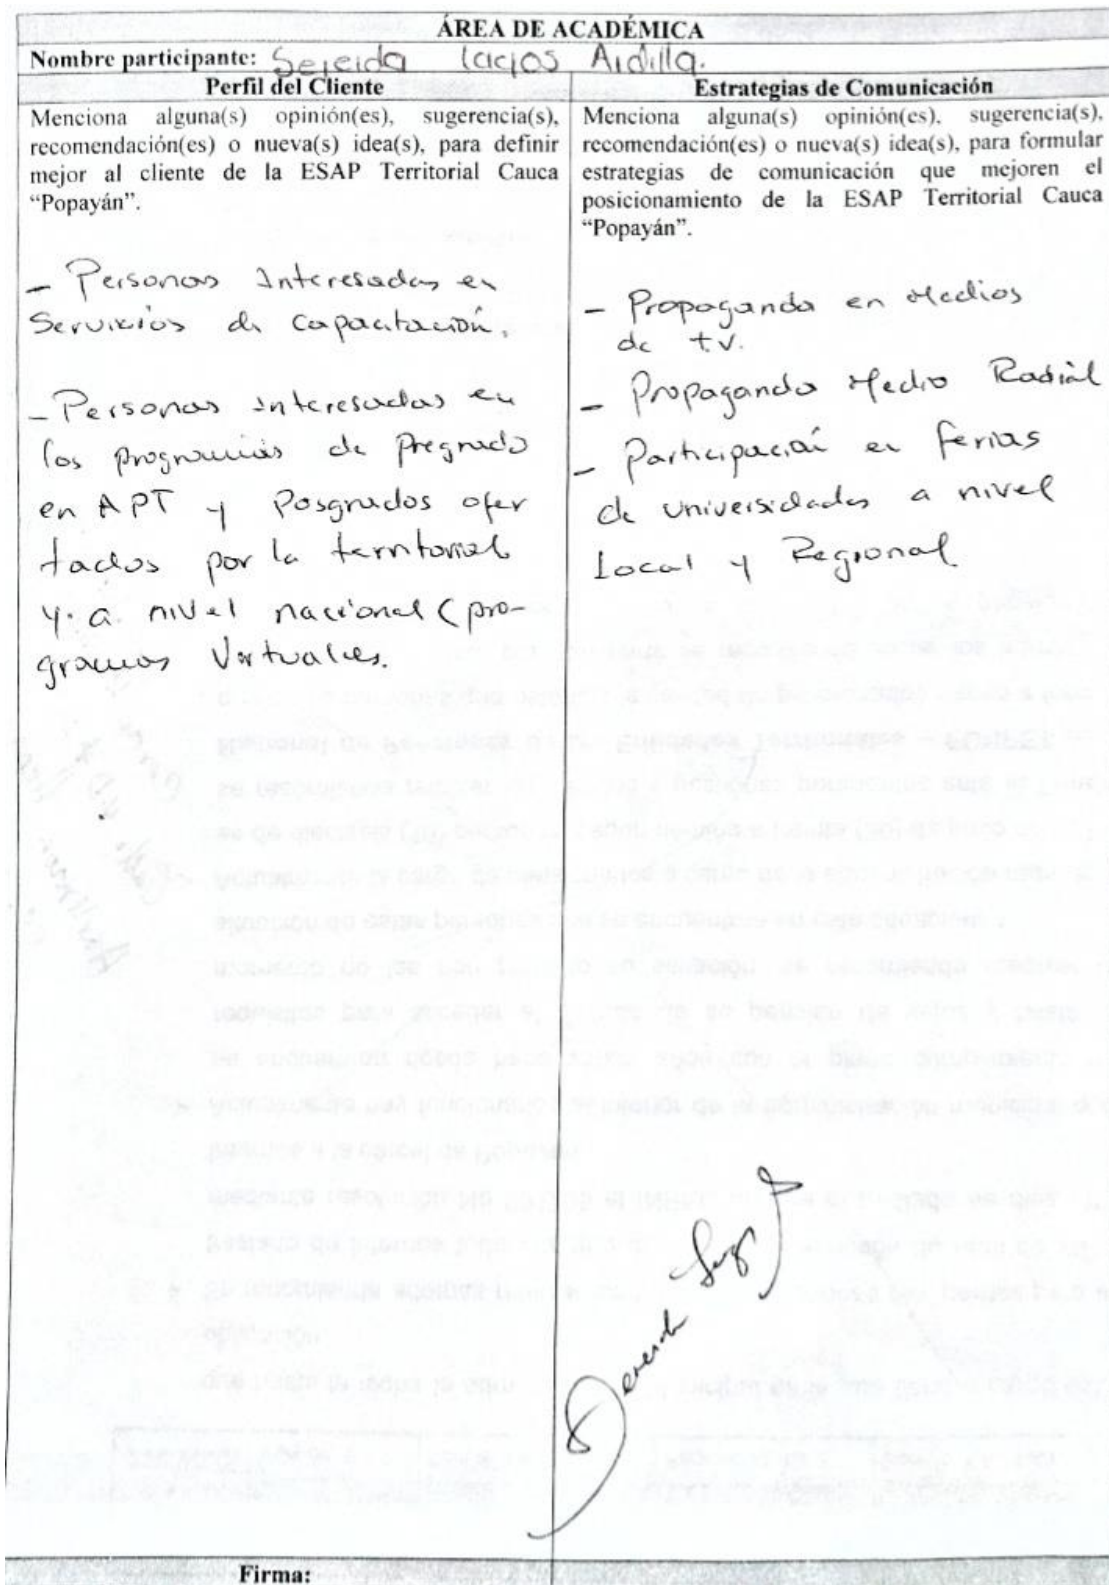 ÁREA DE ACADÉMICA
Nombre participante: Ardilla.
Perfil del Cliente
Menciona alguna(s) opinión(es), sugerencia(s),
recomendación(es) o nueva(s) idea(s), para definir
mejor al cliente de la ESAP Territorial Cauca
“Popayán”.
- Personas Interesadas en
Servicios de capacitación.
- Personas interesadas en
los programas de Pregrado
en APT y Posgrados ofer
tados por la territorial
y a nivel nacional (pro-
gramas Virtuales.
Estrategias de Comunicación
Menciona alguna(s) opinión(es), sugerencia(s),
recomendación(es) o nueva(s) idea(s), para formular
estrategias de comunicación que mejoren el
posicionamiento de la ESAP Territorial Cauca
“Popayán”.
- Propaganda en Medios
de t.v.
- Propaganda Medio Radial
- Participación en ferias
de universidades a nivel
Local y Regional
Firma: